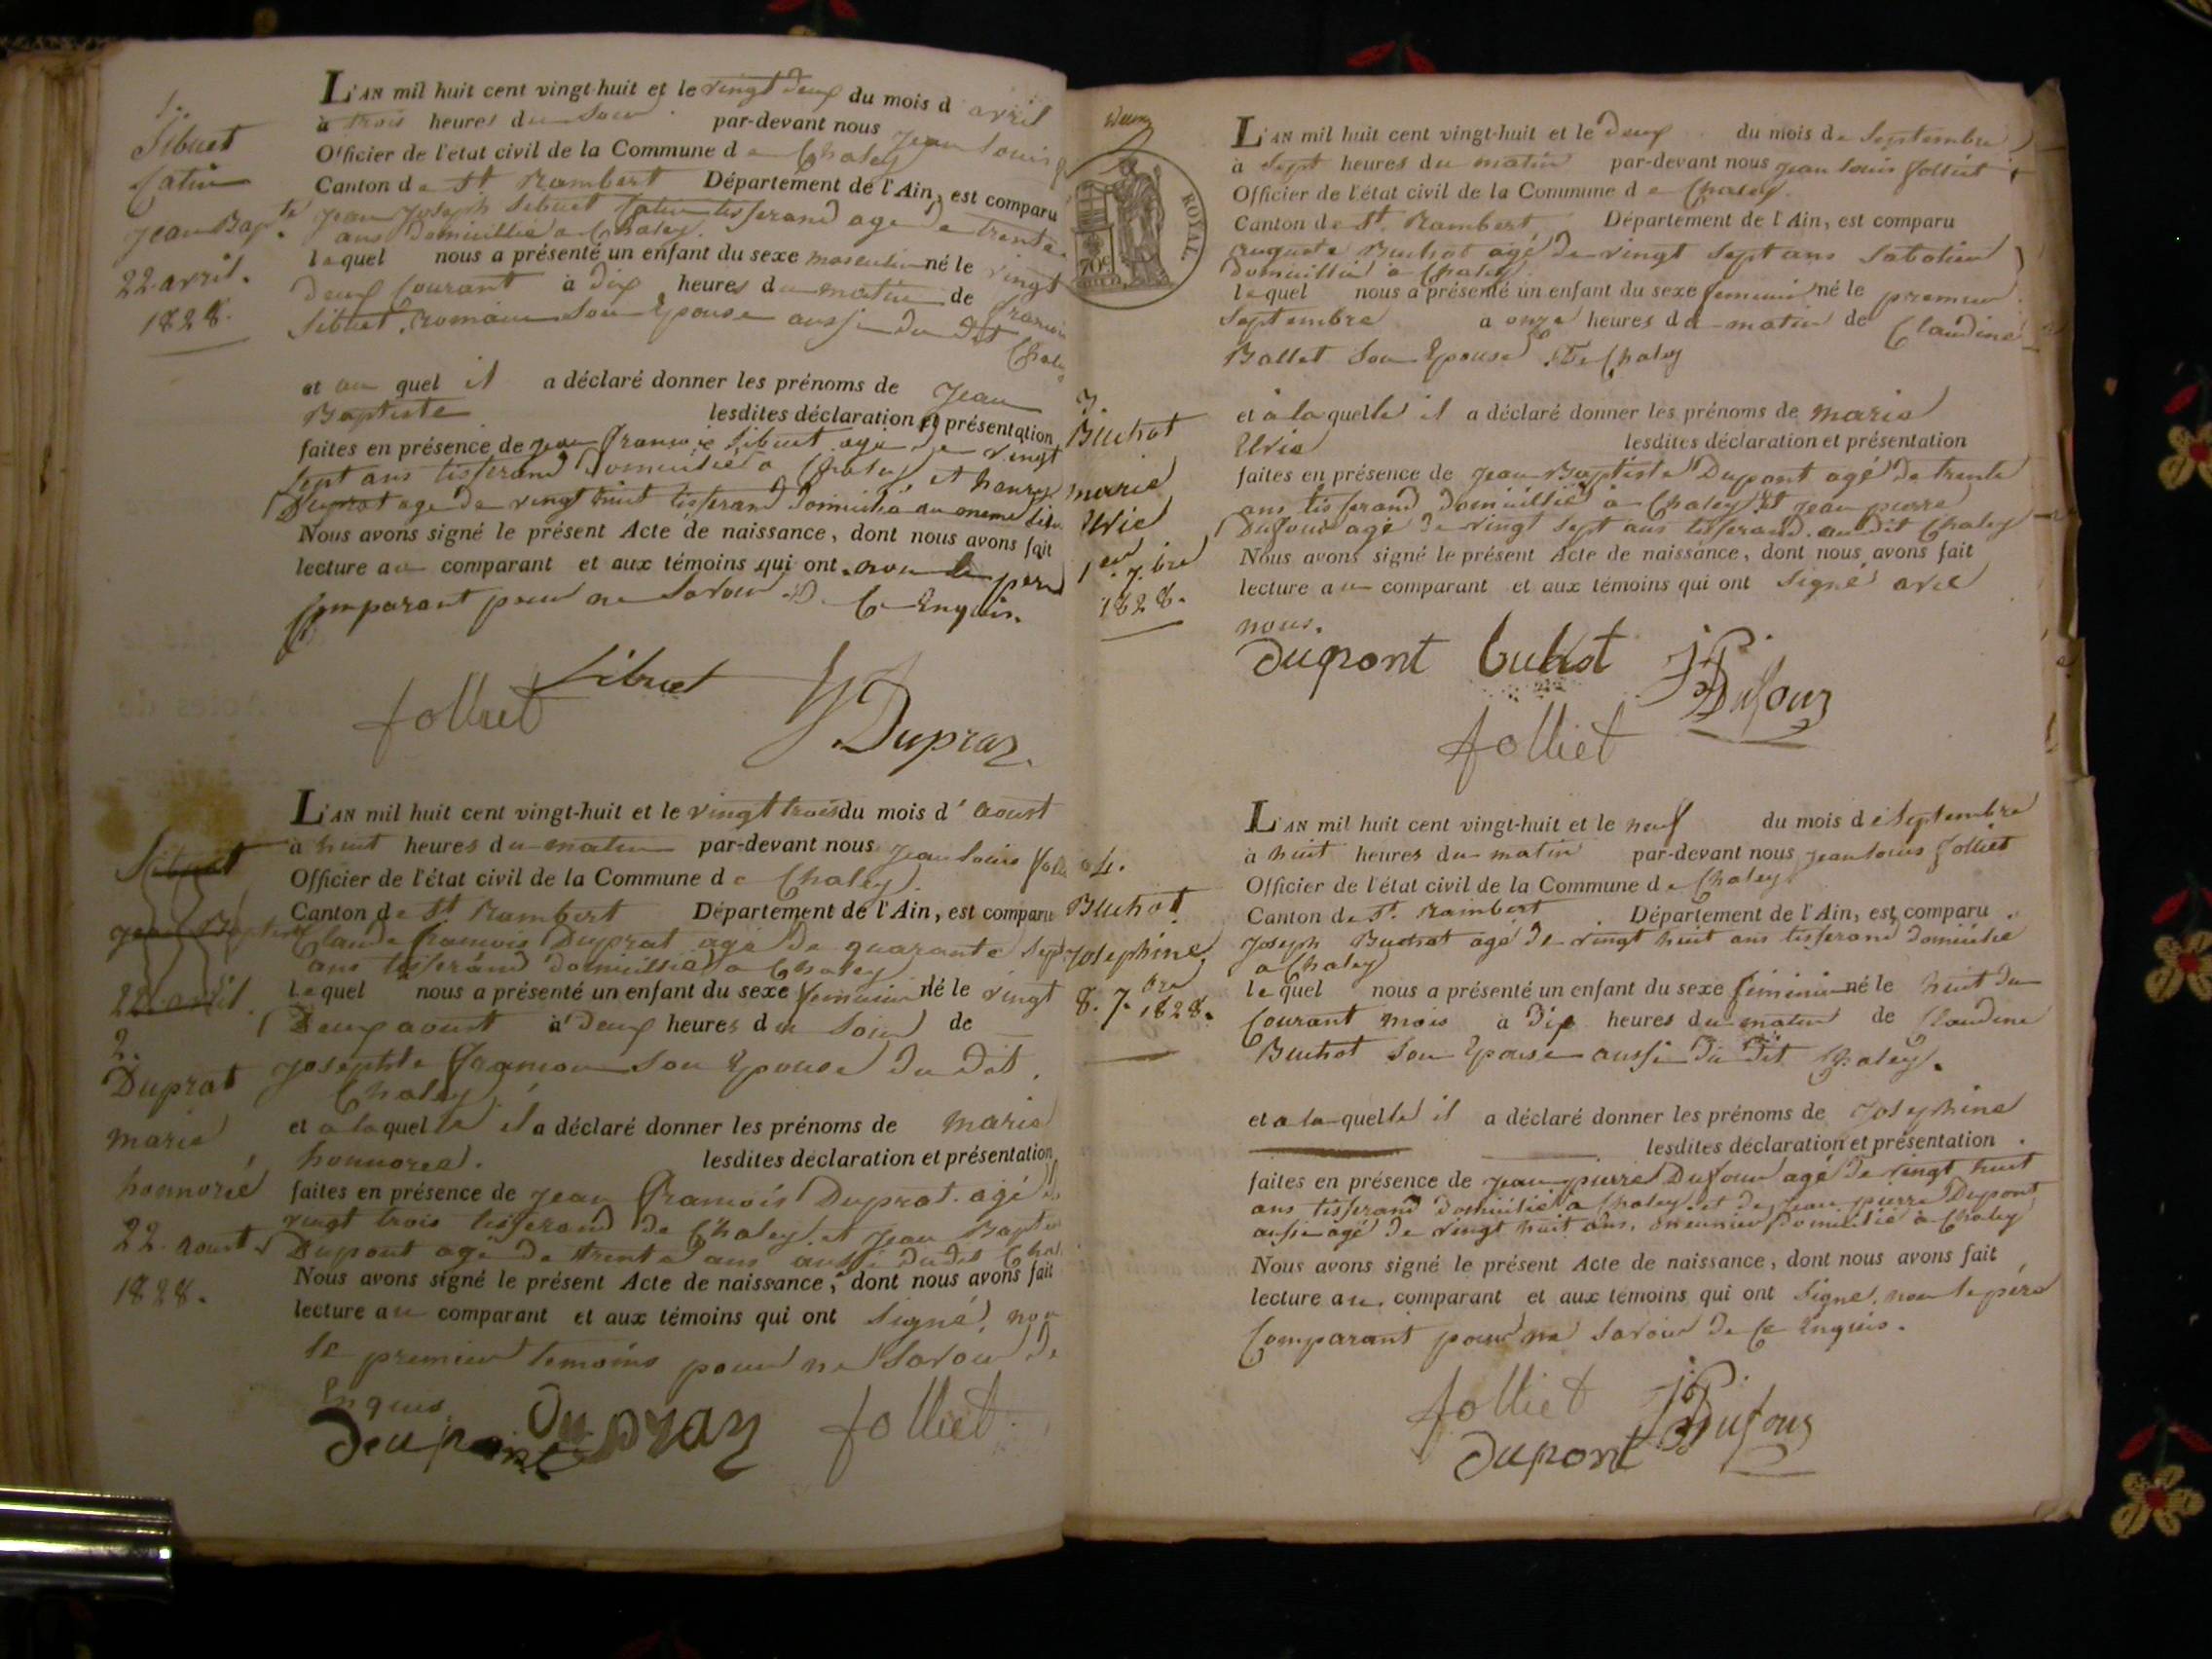 1.
Sibuet
Catin
Jean Bapte.
22 avril.
1828.
L'AN mil huit cent vingt-huit et le vingt deux du mois d avril
à trois heures du soir par-devant nous Jean Louis
Officier de l'état civil de la Commune d e Chaley
Canton de St Rambert Département de l'Ain, est comparu
Jean Joseph Sibuet Catin tisserand age de trente
ans domicillié a Chaley.
lequel nous a présenté un enfant du sexe masculin né le vingt
deux Courant à dix heures du matin de
Sibuet, son Epouse aussi du dit Chaley
et au quel il a déclaré donner les prénoms de Jean
Baptiste lesdites déclaration et présentation
faites en présence de jean francois Sibuet agé de vingt
sept ans tisserand domicilié a Chaley, et
Duprat age de vingt huit tisserand domicilié au meme lieu
Nous avons signé le présent Acte de naissance, dont nous avons fait
lecture au comparant et aux témoins qui ont, non le pere
Comparant pour ne savoir D Ce Enquis.
Sibuet
folliet
Dupraz
Sibuet
Jean Baptiste
22 avril.
2.
Duprat
marie
honnorée
22. aoust
1828.
L'AN mil huit cent vingt-huit et le vingt trois du mois d' aoust
à huit heures du matin par-devant nous Jean Louis folli
Officier de l'état civil de la Commune d e Chaley.
Canton de St Rambert Département de l'Ain, est comparu
Claude francois Duprat agé de quarante sept
ans tisserand domicillié a Chaley
lequel nous a présenté un enfant du sexe feminin né le vingt
Deux aoust à deux heures du soir de
Josephte son Epouse du dit
Chaley
et a la quelle il a déclaré donner les prénoms de marie
honnoree. lesdites déclaration et présentation
faites en présence de jean francois Duprat agé de
vingt trois tisserand de Chaley. et Jean Baptis
Dupont agé de trente ans aussi dudit Chal
Nous avons signé le présent Acte de naissance, dont nous avons fait
lecture au comparant et aux témoins qui ont signé, non
le premier temoins pour ne savoir De
Enquis
Deupont Dupraz folliet
ROYAL
70c
3.
Buchot
marie
Elvie
1er 7bre
1828.
L'AN mil huit cent vingt-huit et le deux du mois de Septembre
à sept heures du matin par-devant nous jean louis folliet
Officier de l'état civil de la Commune d e Chaley.
Canton de St. Rambert, Département de l'Ain, est comparu
auguste Buchot agé de vingt sept ans Sabotier
domicillié a Chaley
lequel nous a présenté un enfant du sexe feminin né le premier
Septembre a onze heures du matin de Claudine
Ballet son Epouse De Chaley
et à la quelle il a déclaré donner les prénoms de marie
Elvie lesdites déclaration et présentation
faites en présence de Jean Baptiste Dupont agé de trente
ans tisserand domicillié a Chaley et jean pierre
Dufour agé de vingt sept ans tisserand. audit Chaley
Nous avons signé le présent Acte de naissance, dont nous avons fait
lecture au comparant et aux témoins qui ont signé avec
nous.
dupont buchot JP Dufour
folliet
4.
Buchot
Josephine
8. 7.bre 1828.
L'AN mil huit cent vingt-huit et le neuf du mois de Septembre
à huit heures du matin par-devant nous jean louis folliet
Officier de l'état civil de la Commune de Chaley
Canton de St. Rambert Département de l'Ain, est comparu
Joseph Buchot agé de vingt huit ans tisserand domicilié
a Chaley
lequel nous a présenté un enfant du sexe féminin né le huit du
Courant mois à dix heures du matin de Claudine
Buchot son Epouse aussi du dit Chaley.
et a la quelle il a déclaré donner les prénoms de Josephine
lesdites déclaration et présentation
faites en présence de jean pierre Dufour agé de vingt huit
ans tisserand domicilié a Chaley. et de jean pierre Dupont
aussi agé de vingt huit ans, meunier domicilié a Chaley
Nous avons signé le présent Acte de naissance, dont nous avons fait
lecture au comparant et aux témoins qui ont signé, non le père
Comparant pour ne savoir De Ce Enquis.
folliet JP Dufour
dupont